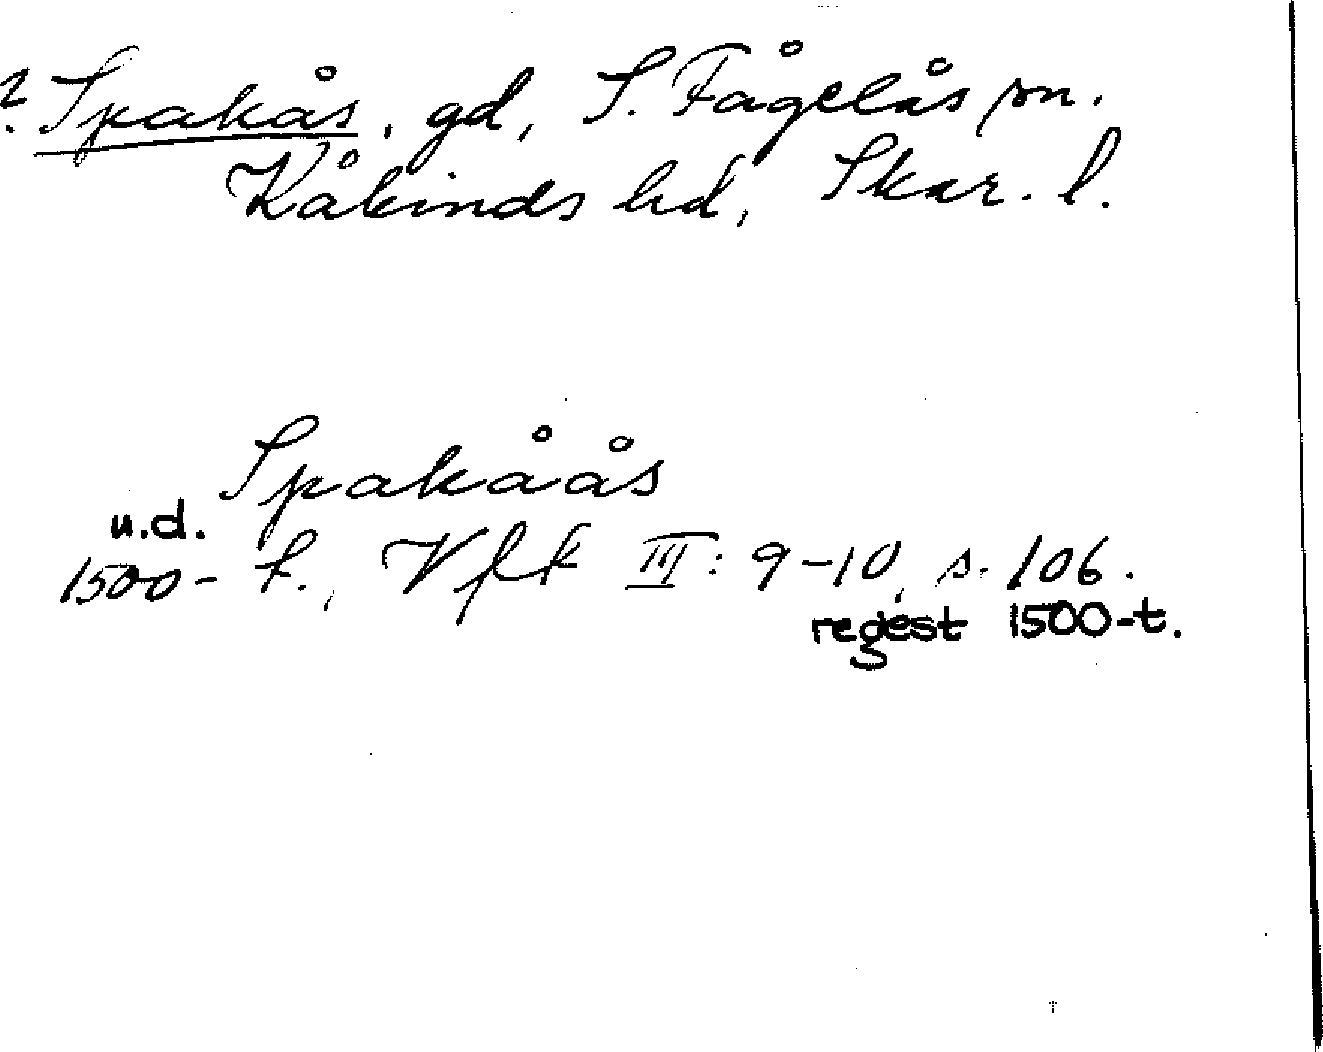 ? Spakås, gd, S. Fågelås sn.
Kåkinds hd, Skar. l.
Spakåås
u.d.
1500- t., Vfk III: 9-10, s. 106.
regest 1500-t.